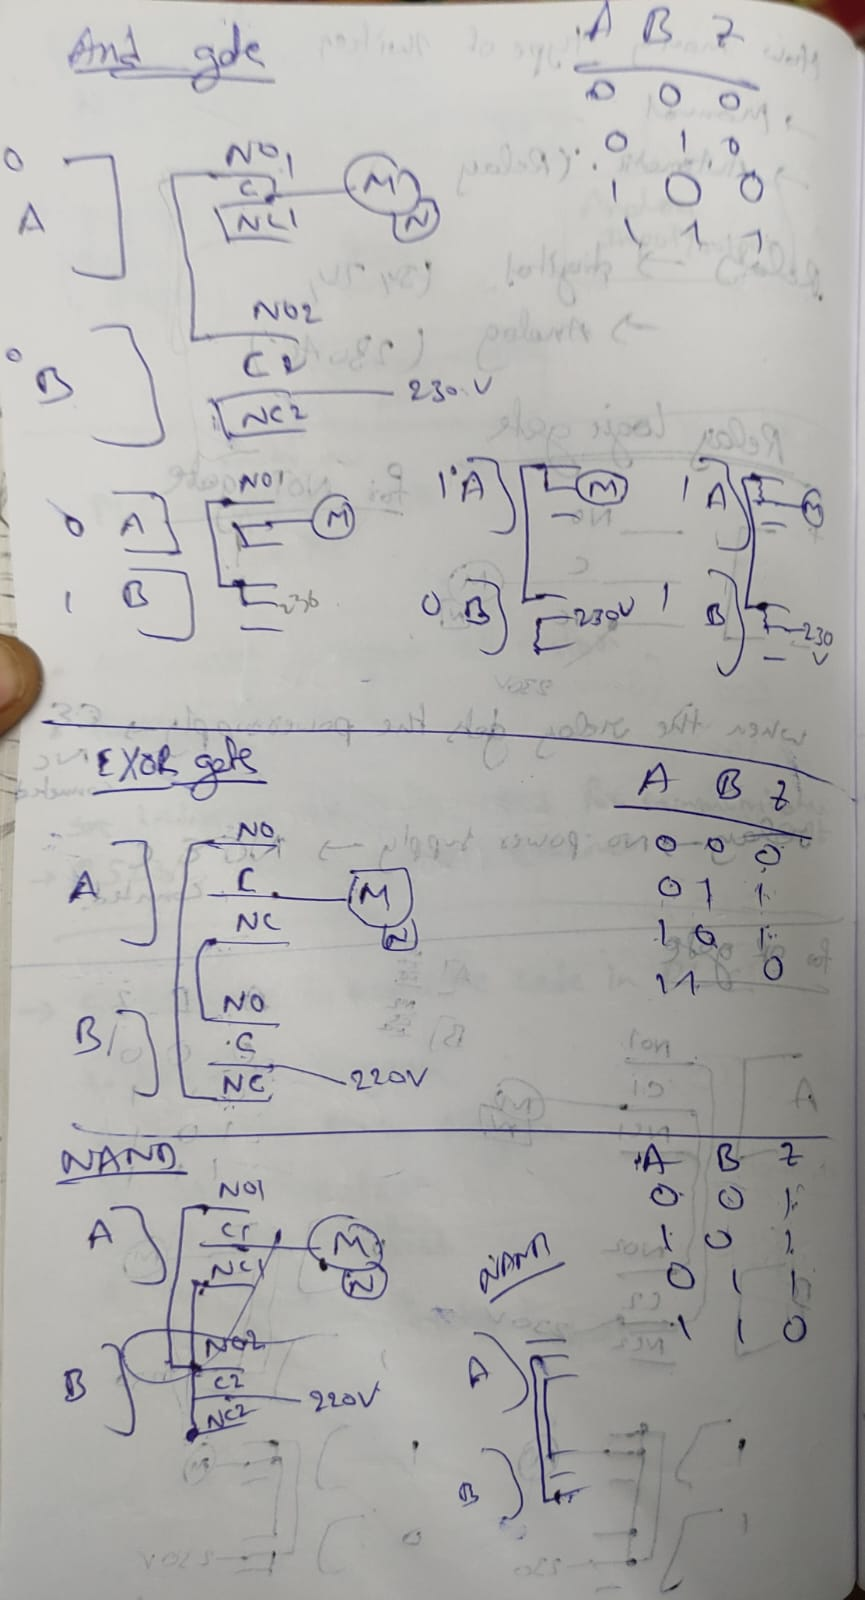 And gate
A B Z
0 0 0
0 1 0
1 0 0
1 1 1
0
A
NO1
C1
NC1
M
N
0
B
NO2
C2
NC2
230V
0 A
1 B
NO1
M
230
1 A
0 B
M
230V
1 A
1 B
M
230
V
EXOR gate
A B Z
0 0 0
0 1 1
1 0 1
1 1 0
A
NO
C
NC
M
N
B
NO
C
NC
220V
NAND
A B Z
0 0 1
1 0 1
0 1 1
1 1 0
A
NO1
C1
NC1
M
N
B
NO2
C2
NC2
220V
NAND
A
B